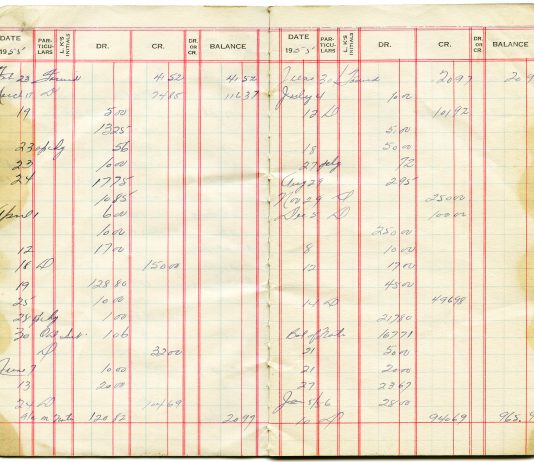 DATE PARTICULARS L. K'S INITIALS DR. CR. DR. OR CR. BALANCE
1955
Feb 23 Forward 4152 4152
March 17 D 2485 11637
19 500
1325
23 op chg 56
23 1000
24 1775
1085
April 1 600
1000
12 1700
18 D 15000
19 12880
25 1000
28 op chg 100
30 106
D 3200
June 7 1000
13 2000
24 D 10469
12082 2099
DATE PARTICULARS L. K'S INITIALS DR. CR. DR. OR CR. BALANCE
1955
June 30 Forward 2097 209
July 4 1000
12 D 10192
500
18 5000
27 op chg 72
Aug 29 295
Nov 29 D 25000
Dec 5 D 10000
25000
8 1000
12 1700
4500
14 D 49698
21780
Bal of Note 16771
21 5000
21 2000
27 2367
Jan 5/56 2800
10 D 94669 965.9